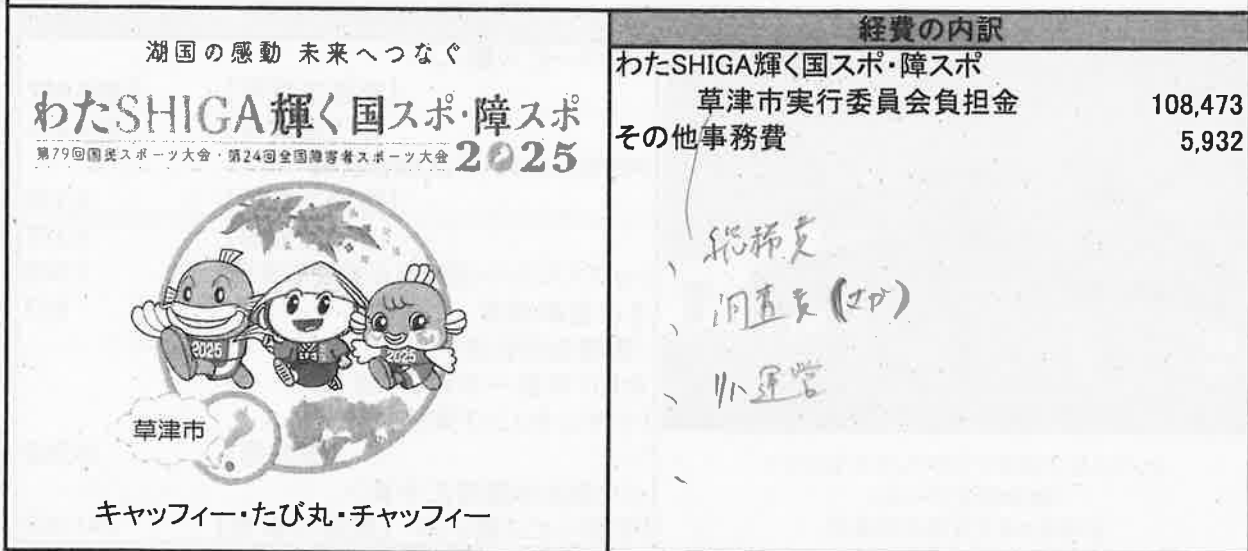 湖国の感動 未来へつなぐ
わたSHIGA輝く国スポ・障スポ
第79回国民スポーツ大会・第24回全国障害者スポーツ大会 2025
2025
2025
草津市
キャッフィー・たび丸・チャッフィー
経費の内訳
わたSHIGA輝く国スポ・障スポ
草津市実行委員会負担金 108,473
その他事務費 5,932
運営